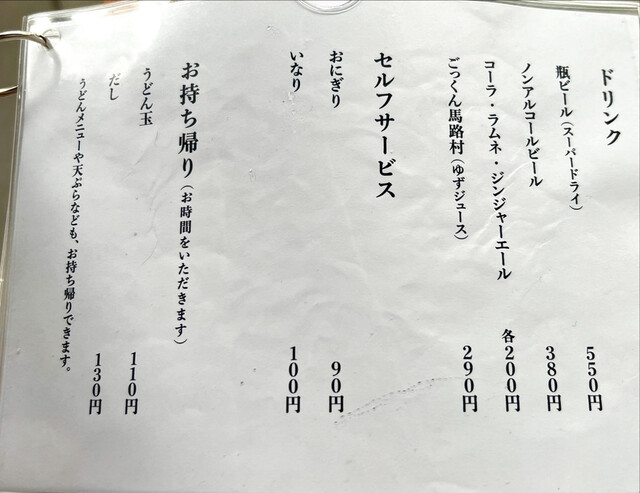 ドリンク
瓶ビール（スーパードライ） 550円
ノンアルコールビール 380円
コーラ・ラムネ・ジンジャーエール 各200円
ごっくん馬路村（ゆずジュース） 290円
セルフサービス
おにぎり 90円
いなり 100円
お持ち帰り（お時間をいただきます）
うどん玉 110円
だし 130円
うどんメニューや天ぷらなども、お持ち帰りできます。